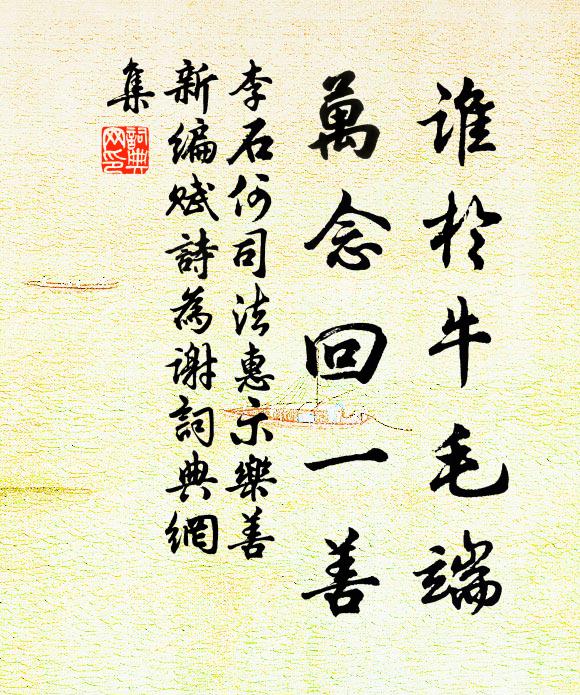 誰於牛毛端
萬念回一善
李石何司法惠示樂善
新編賦詩為謝詞典網
集
詞典網印